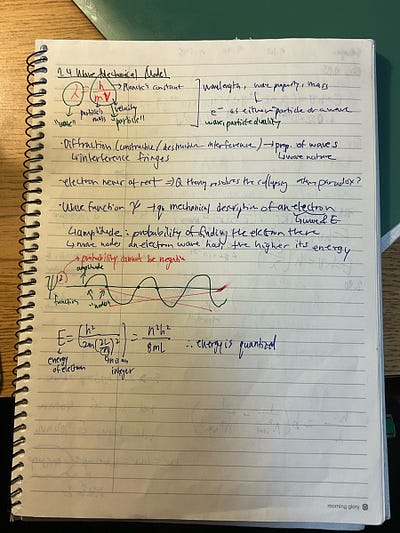 7.4 Wave Mechanical Model
λ = h / mv → Planck's constant
wavelength, wave property, mass
"wave" particle's mass velocity "particle"
e⁻ as either particle or a wave
wave particle duality
· Diffraction (constructive / destructive interference) → prop. of waves
↳ interference fringes ↳ wave nature
· electron never at rest ⇒ Q theory resolves the collapsing atom paradox?
· Wave function ψ → qm mechanical description of an electron
↳ amplitude : probability of finding the electron there
↳ more nodes an electron wave has, the higher its energy
ψ² → probability cannot be negative
amplitude
function "nodes"
E = (h² / 2m(2L/n)²) = n²h² / 8mL ∴ energy is quantized
energy of electron
integer
morning glory